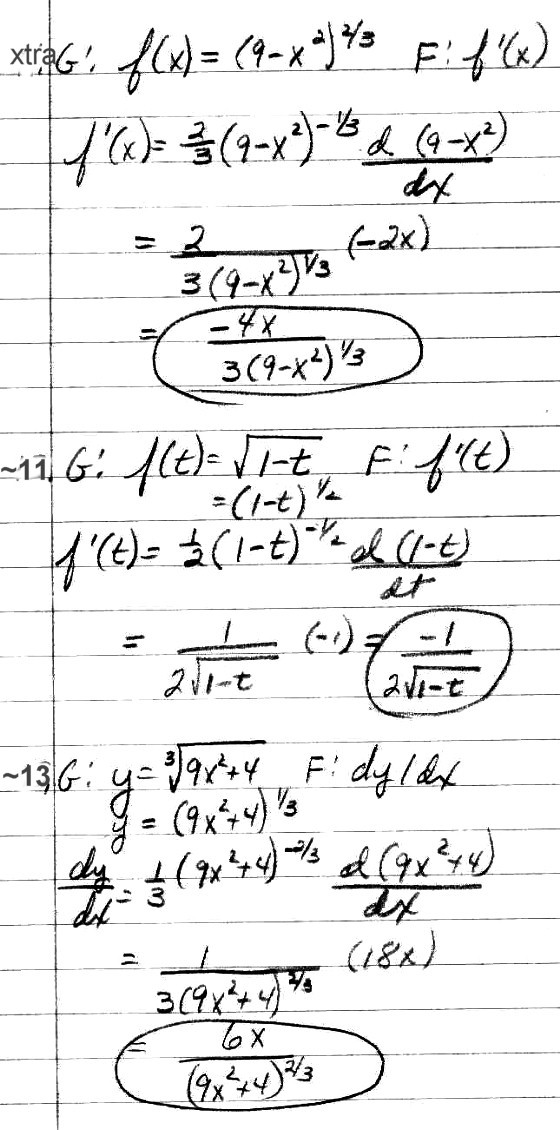 xtra. G: f(x) = (9-x²)^2/3 F: f'(x)
f'(x) = 2/3 (9-x²)^-1/3 d (9-x²)/dx
= 2/3(9-x²)^1/3 (-2x)
= -4x/3(9-x²)^1/3
~11. G: f(t) = √(1-t) F: f'(t)
= (1-t)^1/2
f'(t) = 1/2 (1-t)^-1/2 d (1-t)/dt
= 1/2√(1-t) (-1) = -1/2√(1-t)
~13, G: y = ³√(9x²+4) F: dy/dx
y = (9x²+4)^1/3
dy/dx = 1/3 (9x²+4)^-2/3 d (9x²+4)/dx
= 1/3(9x²+4)^2/3 (18x)
= 6x/(9x²+4)^2/3